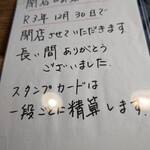 R3年12月30日で
閉店させていただきます
長い間ありがとう
ございました。
スタンプカードは
一段ごとに精算します。